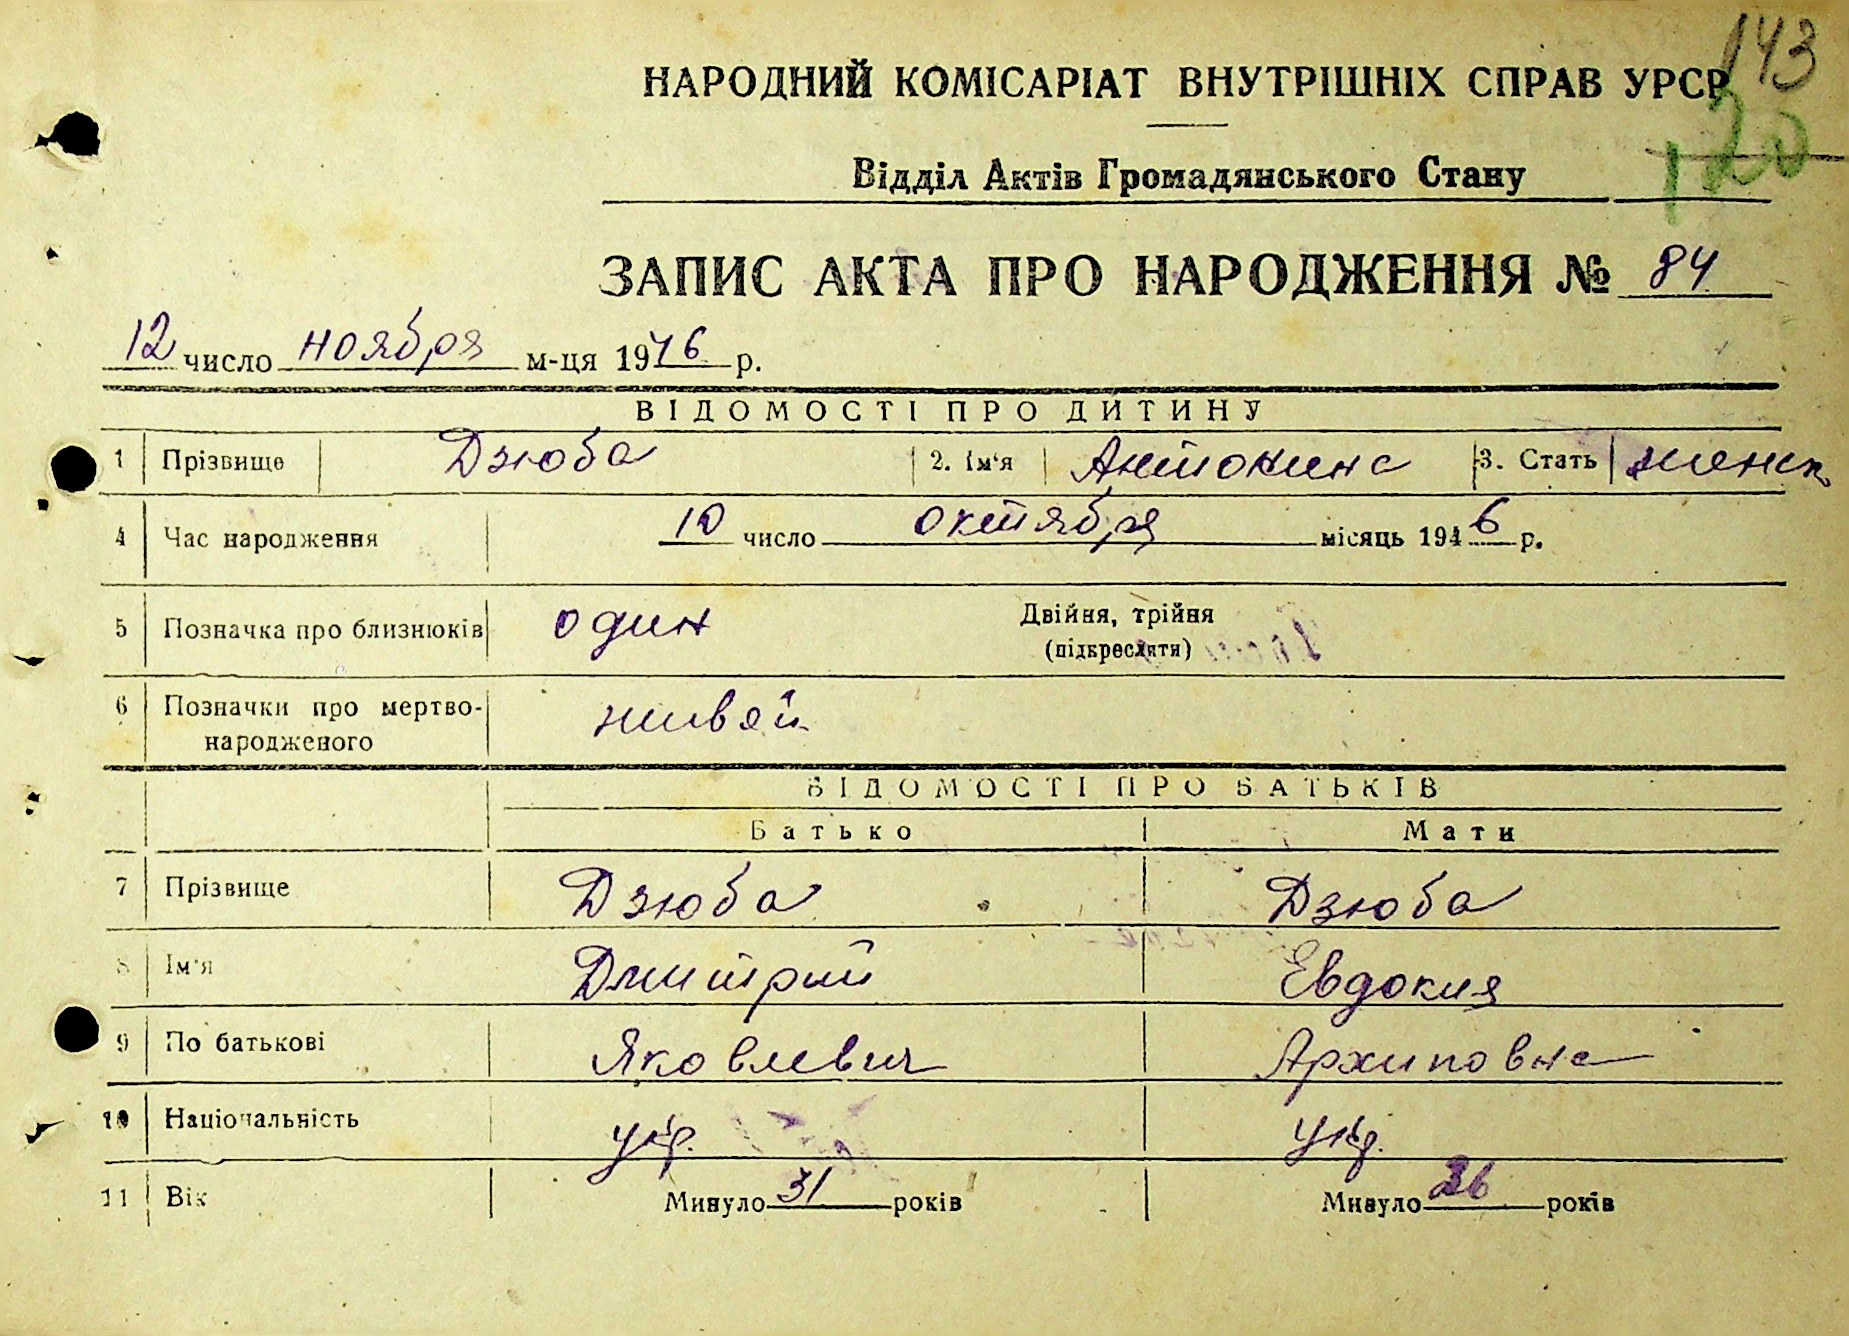 143
НАРОДНИЙ КОМІСАРІАТ ВНУТРІШНІХ СПРАВ УРСР
120
Відділ Актів Громадянського Стану
ЗАПИС АКТА ПРО НАРОДЖЕННЯ № 84
12 число ноября м-ця 1946 р.
ВІДОМОСТІ ПРО ДИТИНУ
1 Прізвище Дзюба 2. Ім'я Антонина 3. Стать женск
4 Час народження 10 число октября місяць 1946 р.
5 Позначка про близнюків один Двійня, трійня
(підкреслити)
6 Позначки про мертво-
народженого живой
ВІДОМОСТІ ПРО БАТЬКІВ
Батько Мати
7 Прізвище Дзюба Дзюба
8 Ім'я Дмитрий Евдокия
9 По батькові Яковлевич Архиповна
10 Національність укр. укр.
11 Вік Минуло 31 років Минуло 26 років